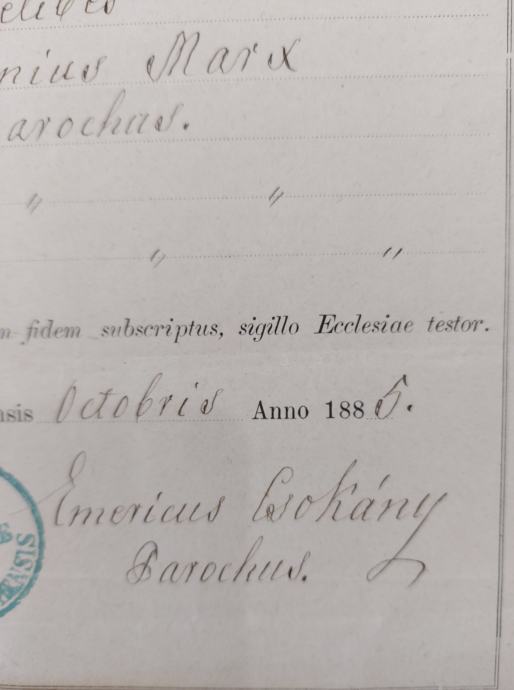 nius Marx
arochus.
" "
" "
n fidem subscriptus, sigillo Ecclesiae testor.
nsis Octobris Anno 1885.
Emericus Csokány
Parochus.
ENSIS